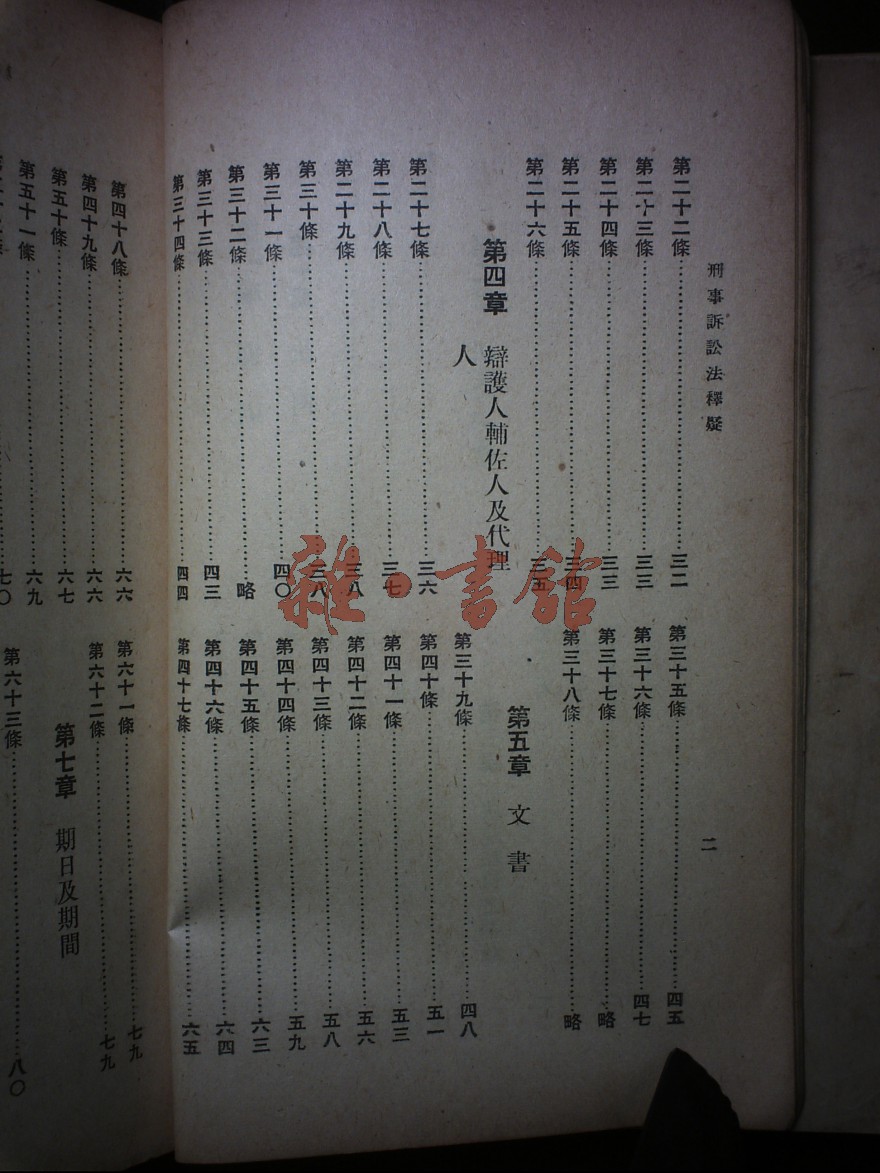 刑事訴訟法釋疑
二
第二十二條 三二
第二十三條 三三
第二十四條 三三
第二十五條 三四
第二十六條 三五
第四章 辯護人輔佐人及代理
人
第二十七條 三六
第二十八條 三七
第二十九條 三八
第三十條 三八
第三十一條 四〇
第三十二條 略
第三十三條 四三
第三十四條 四四
第三十五條 四五
第三十六條 四七
第三十七條 略
第三十八條 略
第五章 文書
第三十九條 四八
第四十條 五一
第四十一條 五三
第四十二條 五六
第四十三條 五八
第四十四條 五九
第四十五條 六三
第四十六條 六四
第四十七條 六五
第四十八條 六六
第四十九條 六六
第五十條 六七
第五十一條 六九
七〇
第六十一條 七九
第六十二條 七九
第七章 期日及期間
第六十三條 八〇
雜·書館